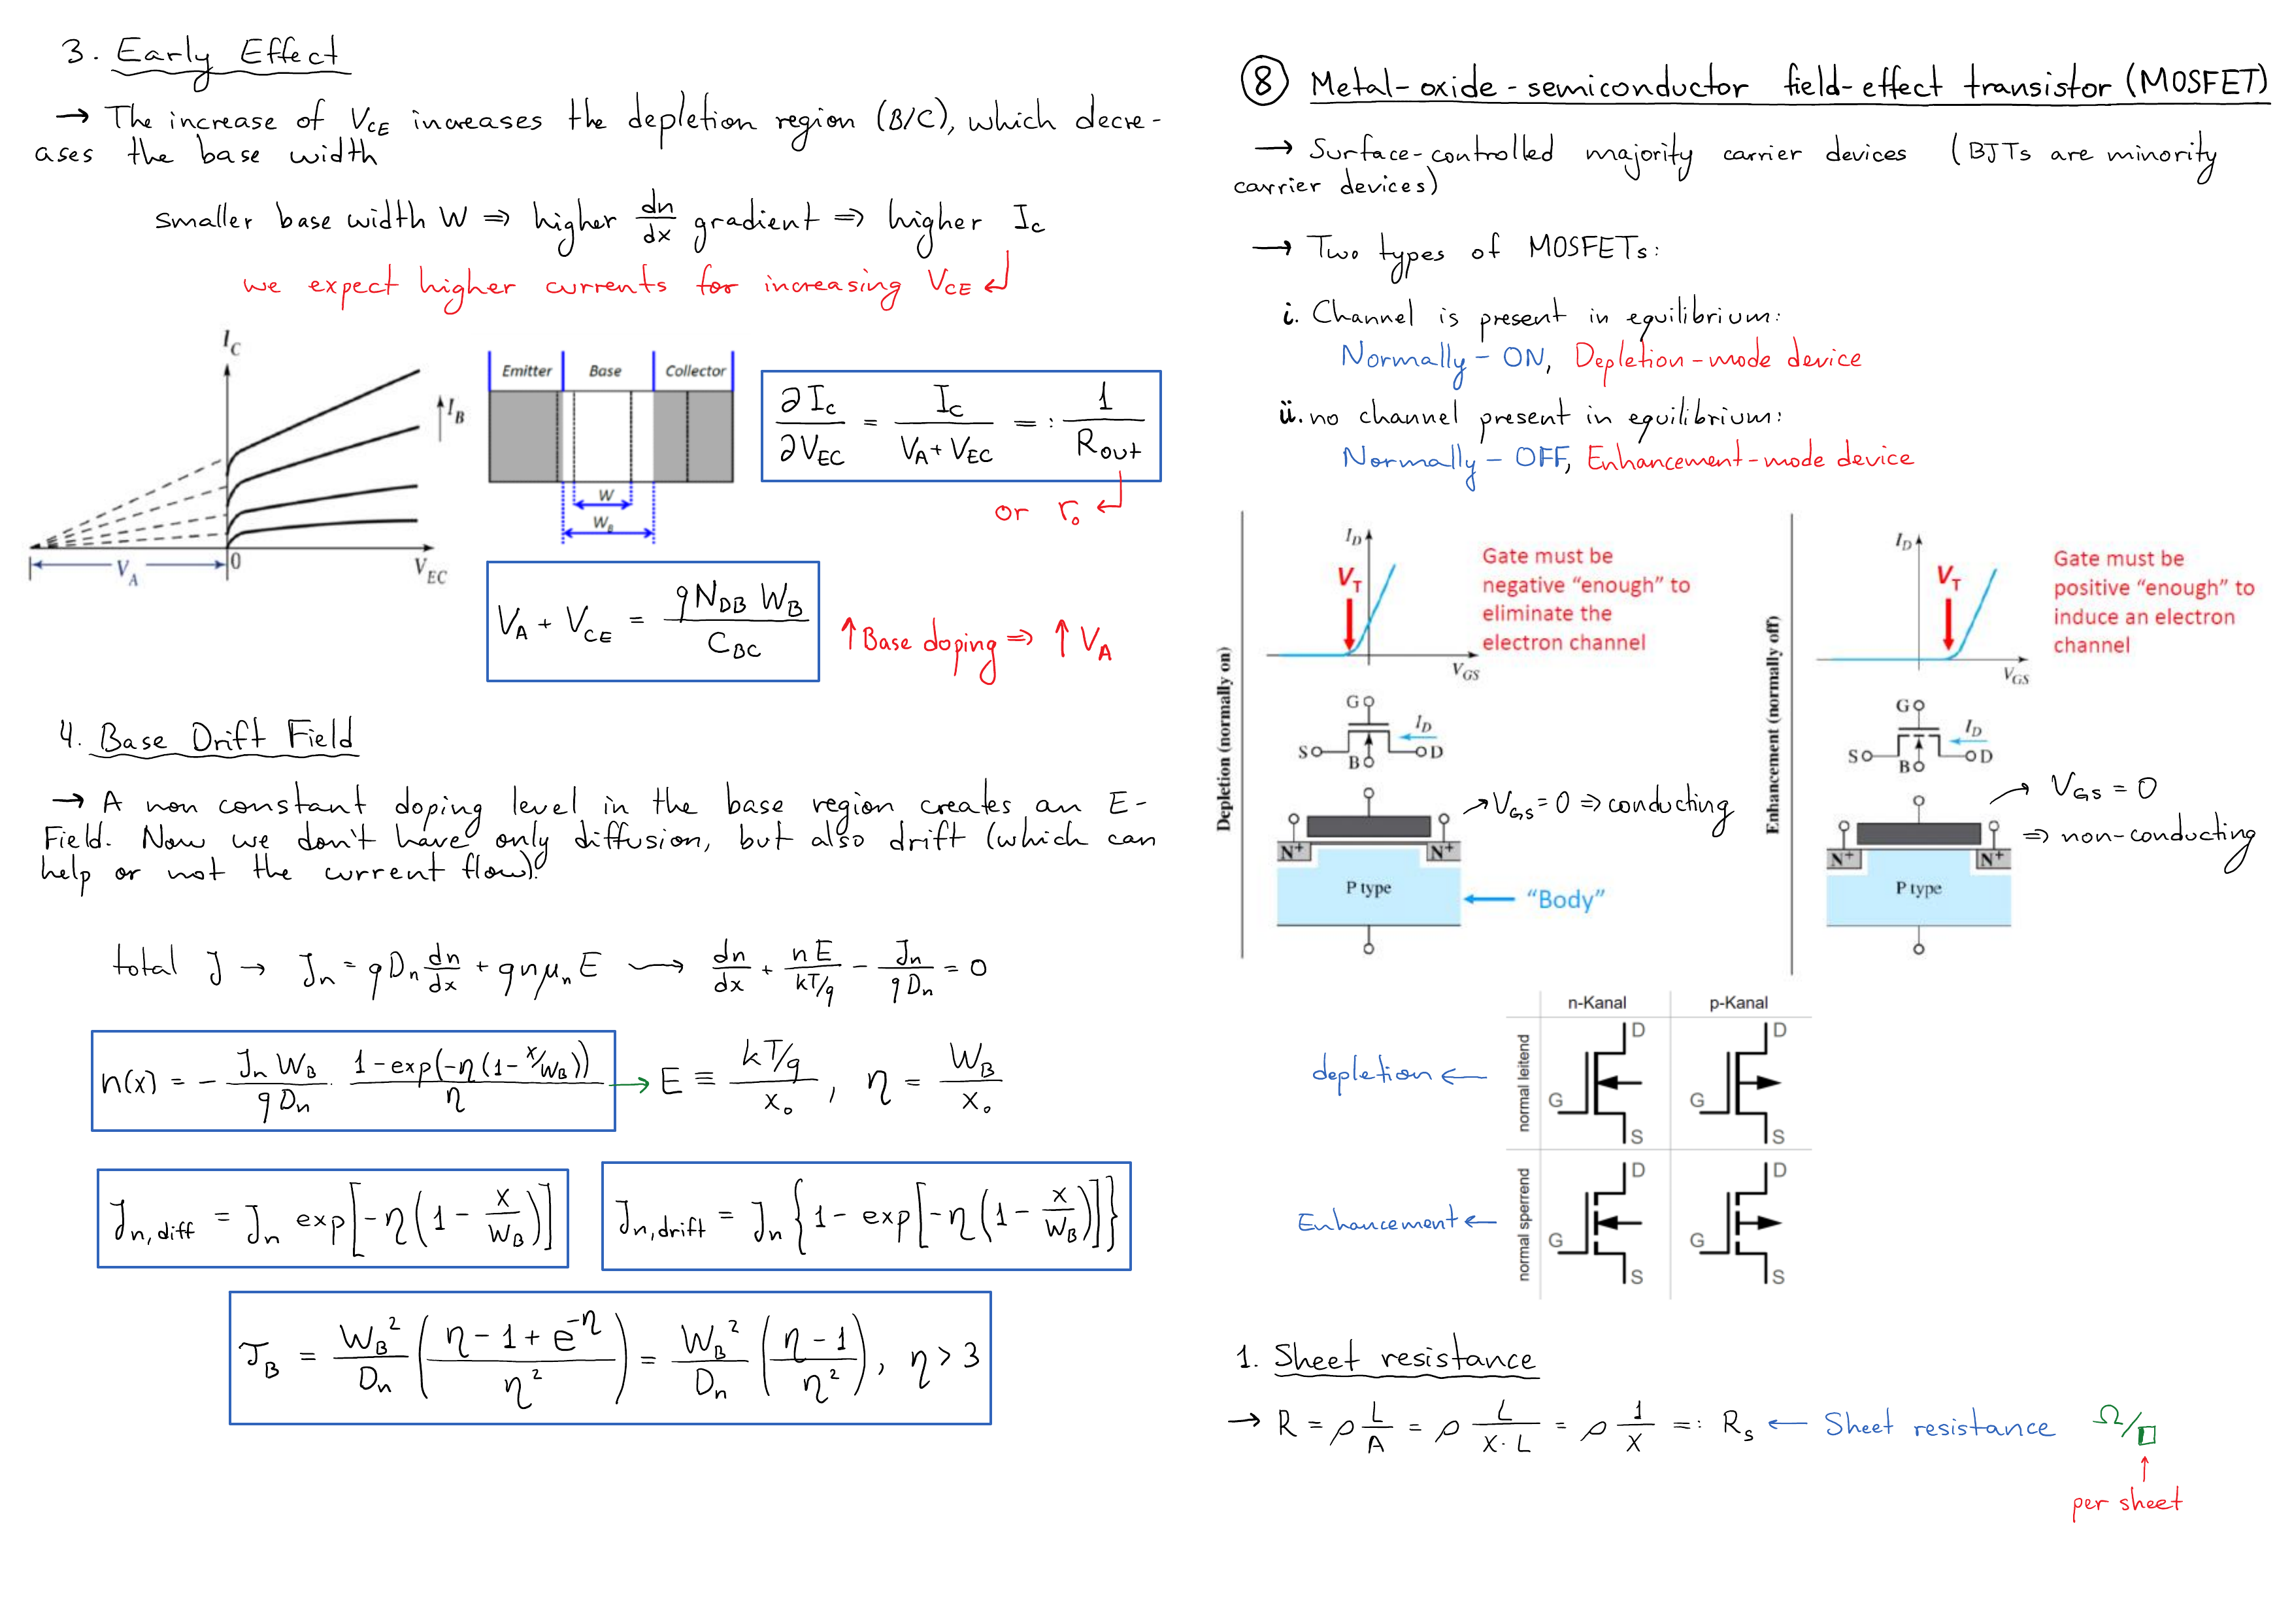 3. Early Effect
→ The increase of V_CE increases the depletion region (B/C), which decre-
ases the base width
smaller base width W ⇒ higher dn/dx gradient ⇒ higher I_c
we expect higher currents for increasing V_CE ↲
I_C
I_B
V_A
0
V_EC
Emitter Base Collector
W
W_B
∂I_c/∂V_EC = I_c/(V_A + V_EC) =: 1/R_out
or r_o ↲
V_A + V_CE = q N_DB W_B / C_BC
↑ Base doping ⇒ ↑ V_A
4. Base Drift Field
→ A non constant doping level in the base region creates an E-
Field. Now we don't have only diffusion, but also drift (which can
help or not the current flow).
total J → J_n = q D_n dn/dx + q n μ_n E ⟶ dn/dx + nE/(kT/q) − J_n/(q D_n) = 0
n(x) = − (J_n W_B)/(q D_n) · (1 − exp(−η(1 − x/W_B)))/η → E ≡ (kT/q)/x_o , η = W_B/x_o
J_n,diff = J_n exp[−η(1 − x/W_B)]
J_n,drift = J_n {1 − exp[−η(1 − x/W_B)]}
τ_B = W_B²/D_n ((η − 1 + e^−η)/η²) = W_B²/D_n ((η − 1)/η²), η > 3
⑧ Metal-oxide-semiconductor field-effect transistor (MOSFET)
→ Surface-controlled majority carrier devices (BJTs are minority
carrier devices)
→ Two types of MOSFETs:
i. Channel is present in equilibrium:
Normally-ON, Depletion-mode device
ii. no channel present in equilibrium:
Normally-OFF, Enhancement-mode device
Depletion (normally on)
I_D
V_T
V_GS
Gate must be
negative “enough” to
eliminate the
electron channel
G
I_D
S
B
D
→ V_GS = 0 ⇒ conducting
N⁺ N⁺
P type
“Body”
Enhancement (normally off)
I_D
V_T
V_GS
Gate must be
positive “enough” to
induce an electron
channel
G
I_D
S
B
D
→ V_GS = 0
⇒ non-conducting
N⁺ N⁺
P type
n-Kanal p-Kanal
depletion ←
normal leitend
D D
G G
S S
Enhancement ←
normal sperrend
D D
G G
S S
1. Sheet resistance
→ R = ρ L/A = ρ L/(X·L) = ρ 1/X =: R_s ← Sheet resistance Ω/□
↑
per sheet